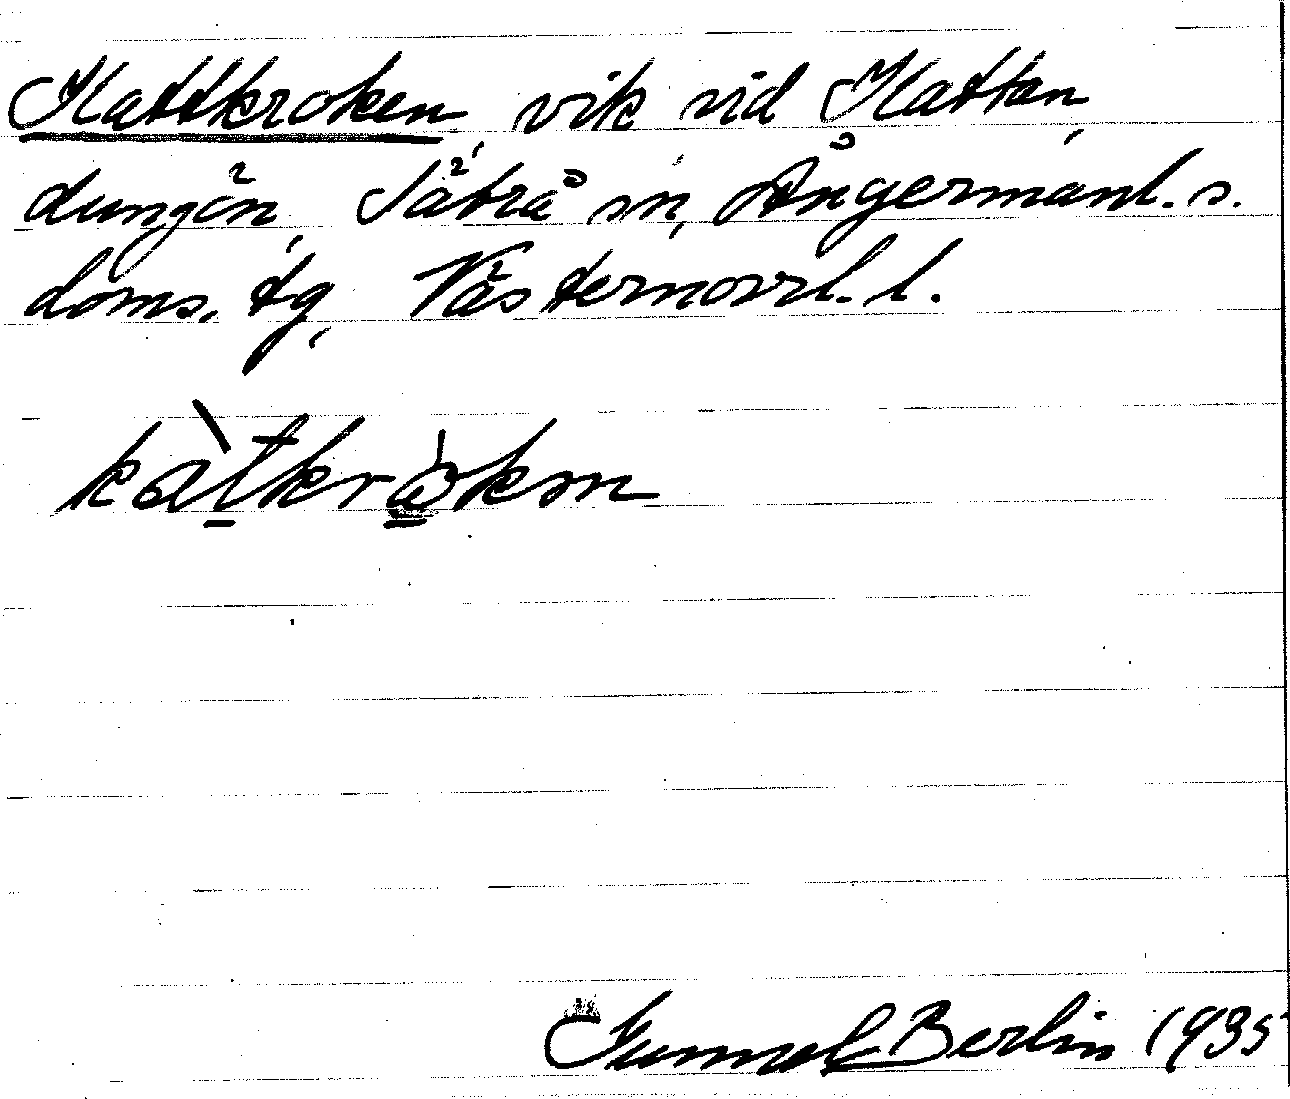 Kattkroken, vik vid Kattan,
dungön, Säbrå sn, Ångermanl. s.
doms. tg, Västernorrl. l.
kàtkrὰkən
Gunnel Berlin 1935